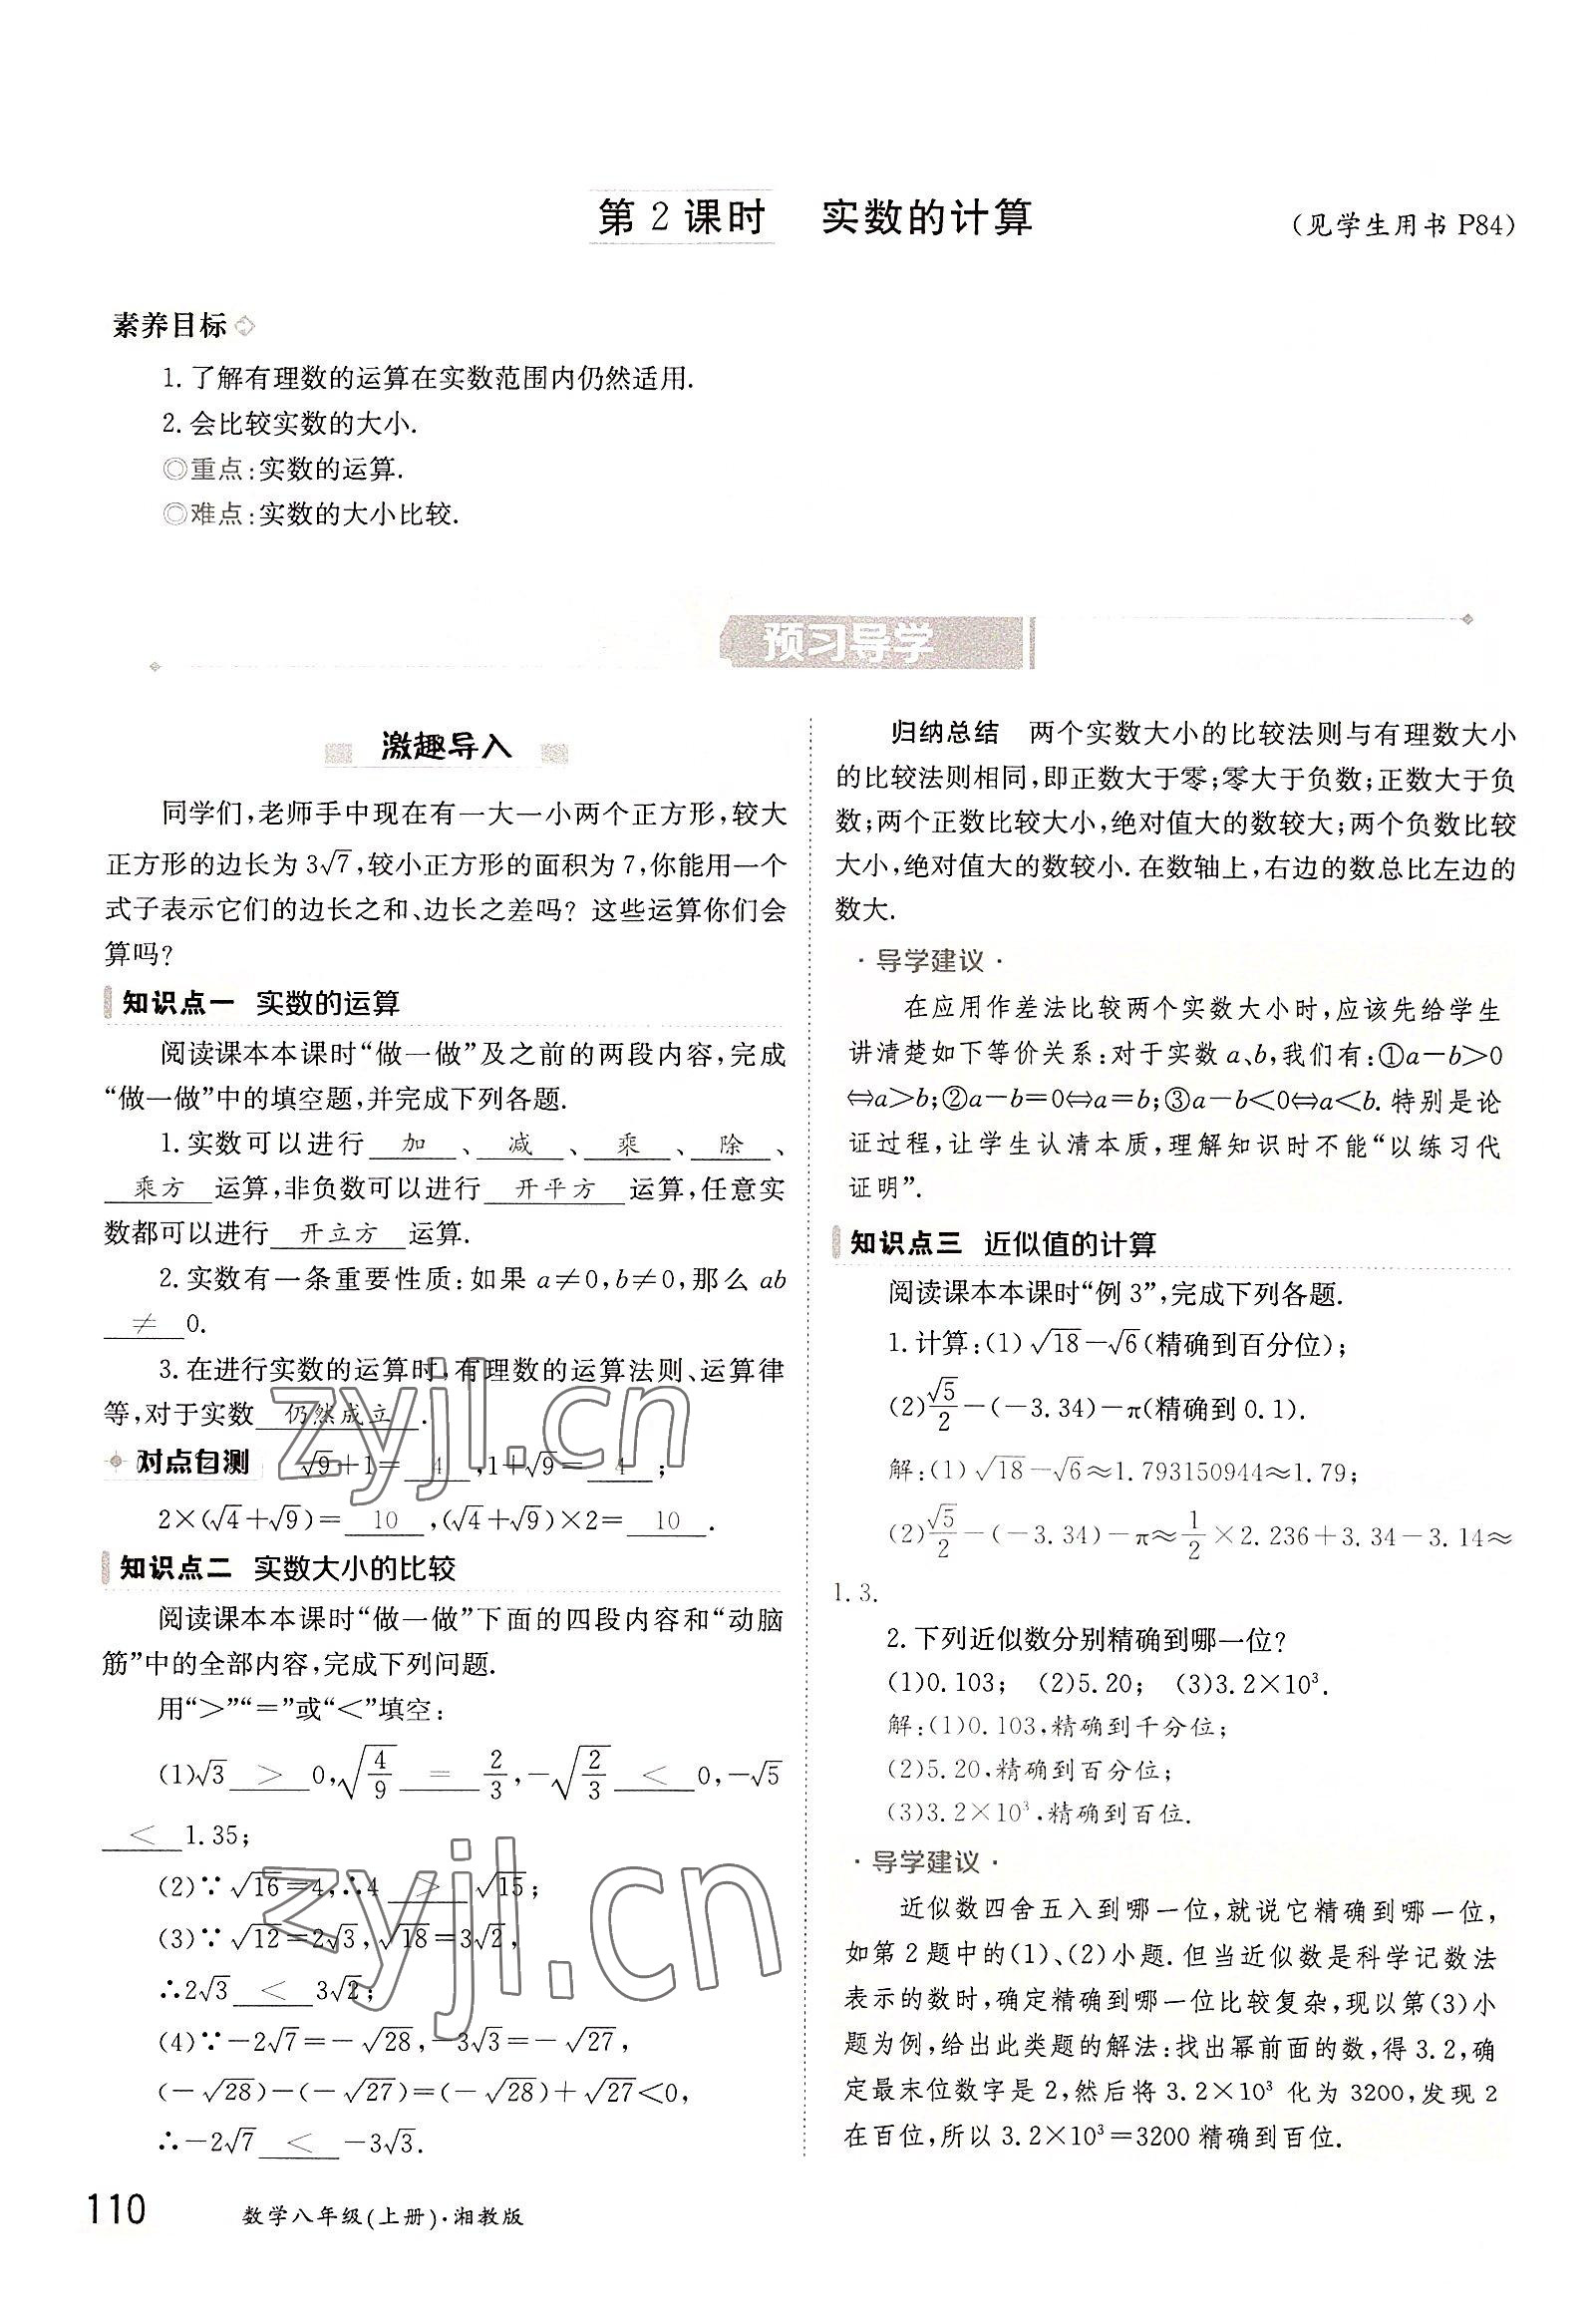 第2课时 实数的计算 (见学生用书 P84)
素养目标
1.了解有理数的运算在实数范围内仍然适用.
2.会比较实数的大小.
◎重点:实数的运算.
◎难点:实数的大小比较.
预习导学
激趣导入
同学们,老师手中现在有一大一小两个正方形,较大
正方形的边长为3√7,较小正方形的面积为7,你能用一个
式子表示它们的边长之和、边长之差吗? 这些运算你们会
算吗?
知识点一 实数的运算
阅读课本本课时“做一做”及之前的两段内容,完成
“做一做”中的填空题,并完成下列各题.
1.实数可以进行 加 、 减 、 乘 、 除 、
乘方 运算,非负数可以进行 开平方 运算,任意实
数都可以进行 开立方 运算.
2.实数有一条重要性质:如果a≠0,b≠0,那么ab
≠ 0.
3.在进行实数的运算时,有理数的运算法则、运算律
等,对于实数 仍然成立 .
对点自测 √9+1= 4 ,1+√9= 4 ;
2×(√4+√9)= 10 ,(√4+√9)×2= 10 .
知识点二 实数大小的比较
阅读课本本课时“做一做”下面的四段内容和“动脑
筋”中的全部内容,完成下列问题.
用“>”“=”或“<”填空:
(1)√3 > 0,√(4/9) = 2/3,-√(2/3) < 0,-√5
< 1.35;
(2)∵√16=4,∴4 > √15;
(3)∵√12=2√3,√18=3√2,
∴2√3 < 3√2;
(4)∵-2√7=-√28,-3√3=-√27,
(-√28)-(-√27)=(-√28)+√27<0,
∴-2√7 < -3√3.
归纳总结 两个实数大小的比较法则与有理数大小
的比较法则相同,即正数大于零;零大于负数;正数大于负
数;两个正数比较大小,绝对值大的数较大;两个负数比较
大小,绝对值大的数较小.在数轴上,右边的数总比左边的
数大.
·导学建议·
在应用作差法比较两个实数大小时,应该先给学生
讲清楚如下等价关系:对于实数a、b,我们有:①a-b>0
⇔a>b;②a-b=0⇔a=b;③a-b<0⇔a<b.特别是论
证过程,让学生认清本质,理解知识时不能“以练习代
证明”.
知识点三 近似值的计算
阅读课本本课时“例3”,完成下列各题.
1.计算:(1)√18-√6(精确到百分位);
(2)√5/2-(-3.34)-π(精确到0.1).
解:(1)√18-√6≈1.793150944≈1.79;
(2)√5/2-(-3.34)-π≈1/2×2.236+3.34-3.14≈
1.3.
2.下列近似数分别精确到哪一位?
(1)0.103; (2)5.20; (3)3.2×10³.
解:(1)0.103,精确到千分位;
(2)5.20,精确到百分位;
(3)3.2×10³,精确到百位.
·导学建议·
近似数四舍五入到哪一位,就说它精确到哪一位,
如第2题中的(1)、(2)小题.但当近似数是科学记数法
表示的数时,确定精确到哪一位比较复杂,现以第(3)小
题为例,给出此类题的解法:找出幂前面的数,得3.2,确
定最末位数字是2,然后将3.2×10³化为3200,发现2
在百位,所以3.2×10³=3200精确到百位.
zyjl.cn
zyjl.cn
110 数学八年级(上册)·湘教版